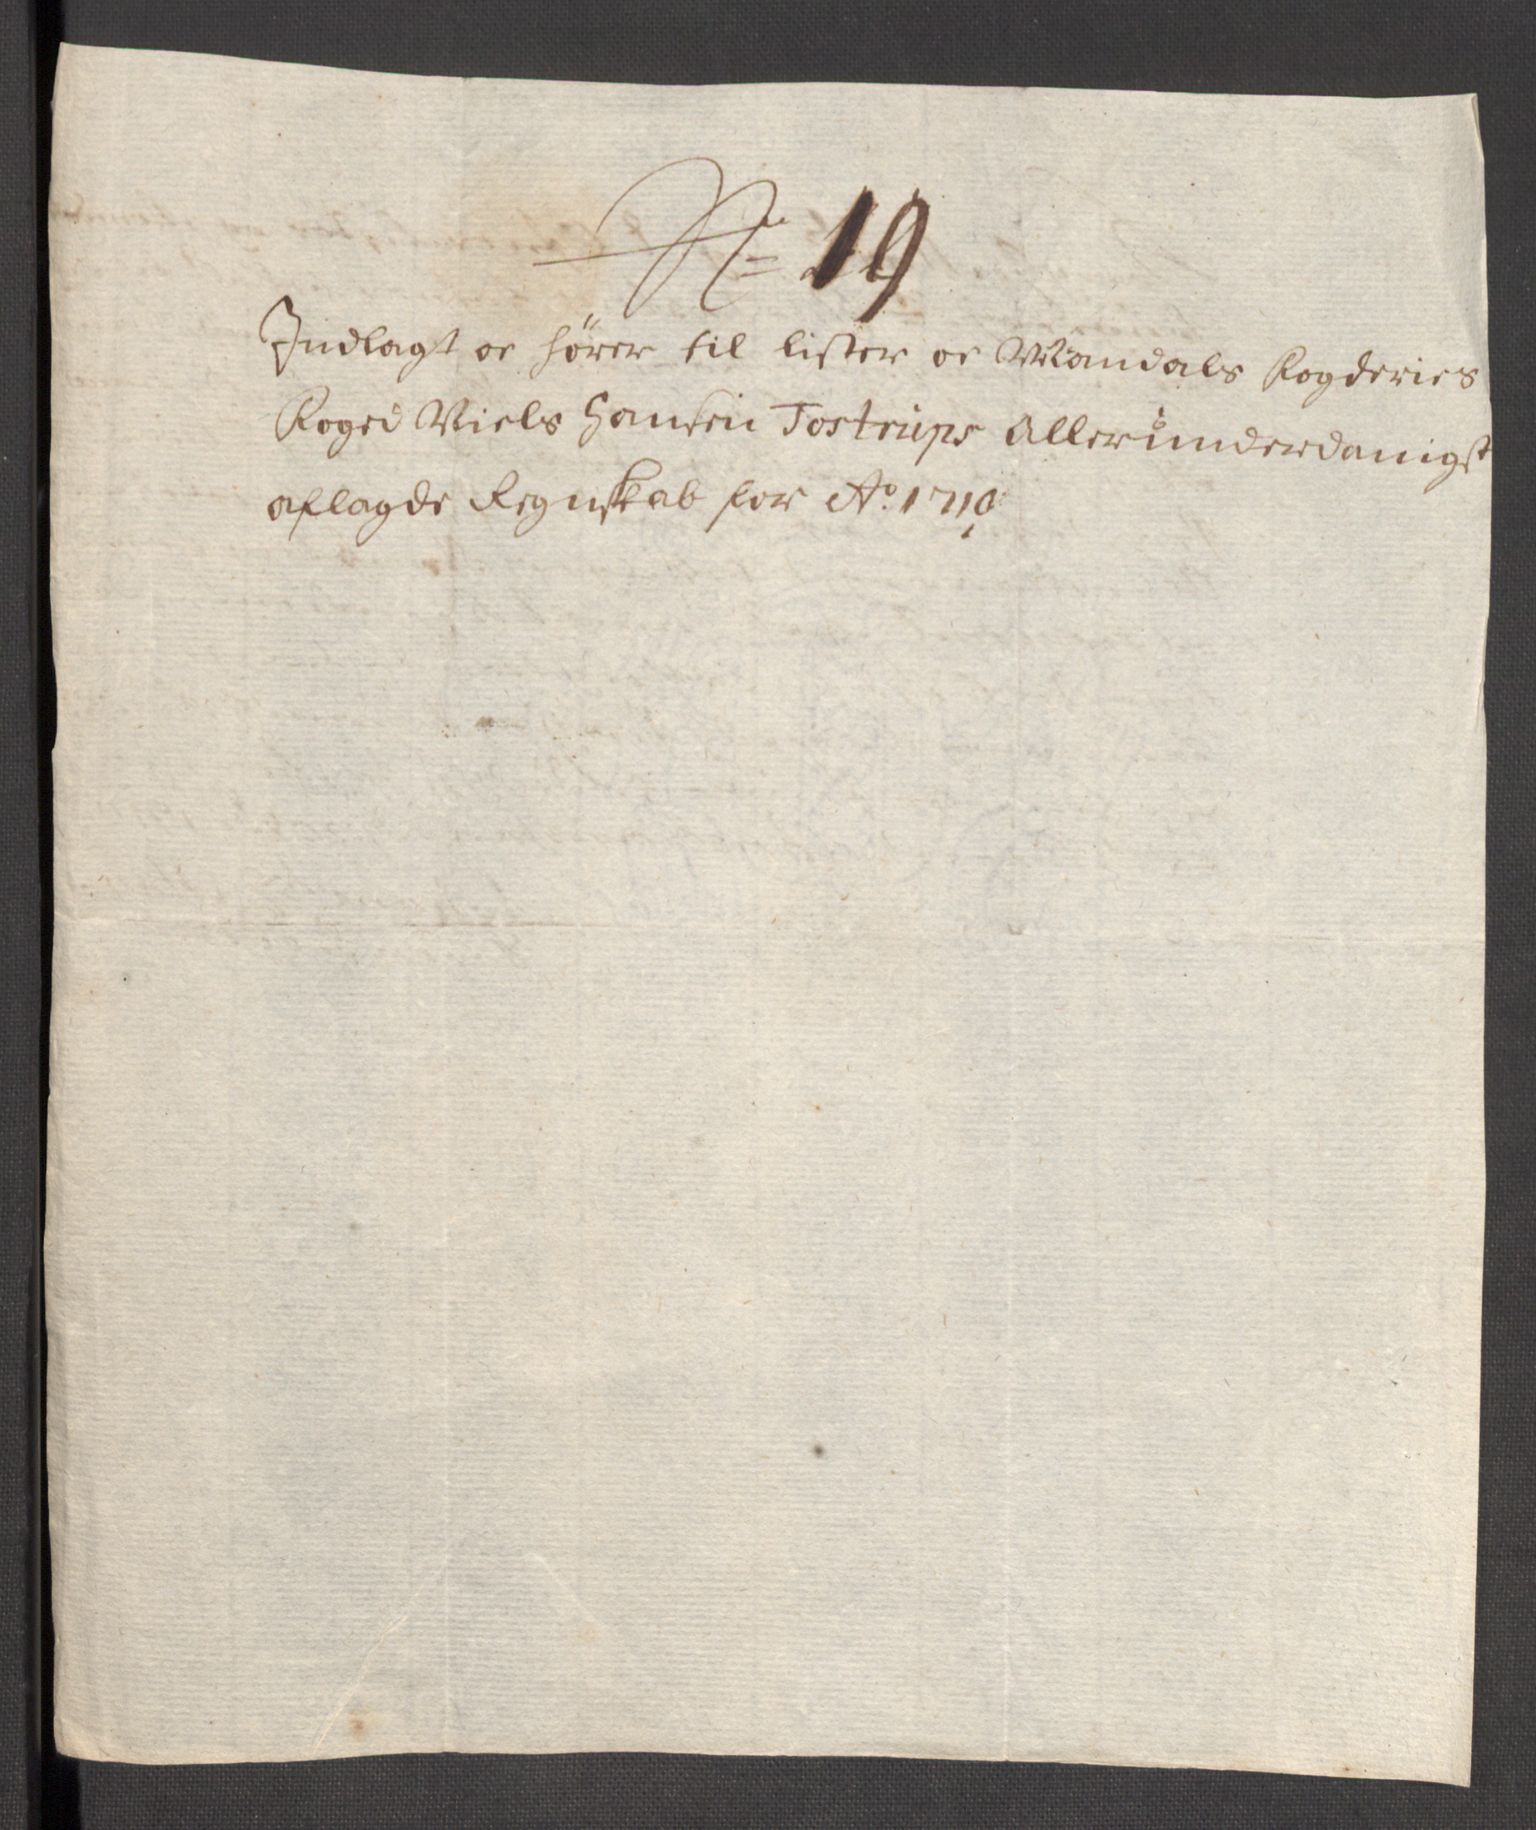 No 19
Indlagt oc hörer til Lister oc Mandals Fogderies
Foged Niels Hansen Tostrups Allerunderdanigst
aflagde Regnskab for Ao. 171